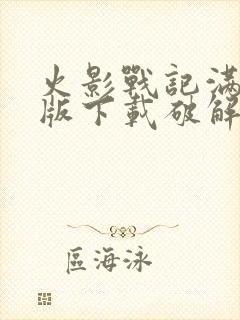 火影戰記滿
版下載破解
區海泳